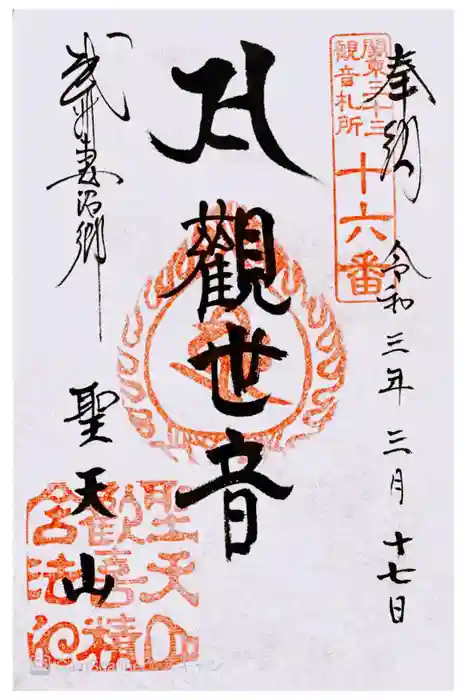 奉納
令和三年三月十七日
關東三十三
觀音札所
十六番
觀世音
武州妻沼郷
聖天山
聖天山
歓喜積